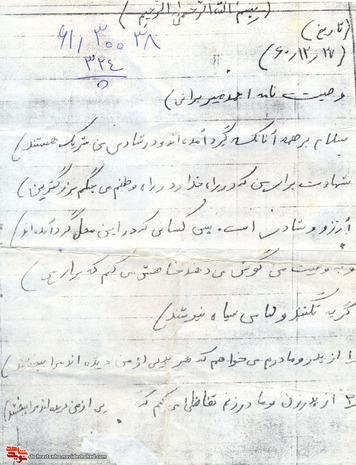 (بسم الله الرحمن الرحیم)
(تاریخ)
۶۱/۳۰۰۳۸
۳۲۴
۵
(۶۰/۱۲/۲۷)
وصیت نامه احمد میرزائی)
سلام بر همه آنانکه گرد آمده‌اند و در شادی من شریک هستند)
شهادت برای من که در راه خدا و در راه وطنم می‌جنگم بزرگترین)
آرزو و شادی است. پس کسانی که در این محل گرد آمده‌اند)
و به وصیت من گوش می‌دهند خواهش می‌کنم که برای من)
گریه نکنند و لباس سیاه نپوشند)
را از پدر و مادرم می‌خواهم که هر بدی از من دیده‌اند مرا ببخشند)
۳ از پدر زن و مادر زنم تقاضا می‌کنم که بدی از من دیده‌اند مرا ببخشند)